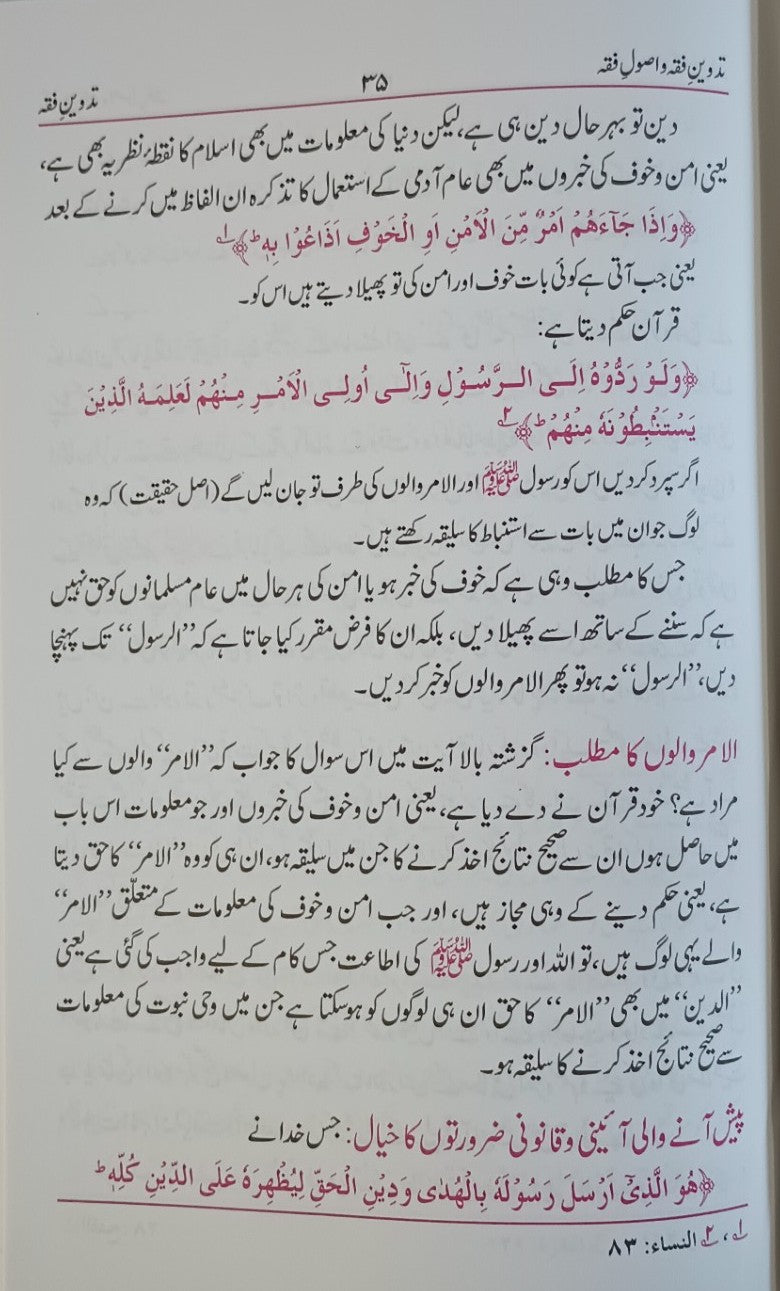 تدوینِ فقہ و اصولِ فقہ
۳۵
تدوینِ فقہ
دین تو بہر حال دین ہی ہے، لیکن دنیا کی معلومات میں بھی اسلام کا نقطۂ نظر یہ بھی ہے،
یعنی امن و خوف کی خبروں میں بھی عام آدمی کے استعمال کا تذکرہ ان الفاظ میں کرنے کے بعد
﴿وَاِذَا جَآءَهُمْ اَمْرٌ مِّنَ الْاَمْنِ اَوِ الْخَوْفِ اَذَاعُوْا بِهٖ ؕ﴾ ۱؎
یعنی جب آتی ہے کوئی بات خوف اور امن کی تو پھیلا دیتے ہیں اس کو۔
قرآن حکم دیتا ہے:
﴿وَلَوْ رَدُّوْهُ اِلَى الرَّسُوْلِ وَاِلٰٓى اُولِى الْاَمْرِ مِنْهُمْ لَعَلِمَهُ الَّذِيْنَ
يَسْتَنْۢبِطُوْنَهٗ مِنْهُمْ ؕ﴾ ۲؎
اگر سپرد کر دیں اس کو رسول ﷺ اور الامر والوں کی طرف تو جان لیں گے (اصل حقیقت) کہ وہ
لوگ جو ان میں بات سے استنباط کا سلیقہ رکھتے ہیں۔
جس کا مطلب وہی ہے کہ خوف کی خبر ہو یا امن کی ہر حال میں عام مسلمانوں کو حق نہیں
ہے کہ سننے کے ساتھ اسے پھیلا دیں، بلکہ ان کا فرض مقرر کیا جاتا ہے کہ ”الرسول“ تک پہنچا
دیں، ”الرسول“ نہ ہو تو پھر الامر والوں کو خبر کر دیں۔
الامر والوں کا مطلب: گزشتہ بالا آیت میں اس سوال کا جواب کہ ”الامر“ والوں سے کیا
مراد ہے؟ خود قرآن نے دے دیا ہے، یعنی امن و خوف کی خبروں اور جو معلومات اس باب
میں حاصل ہوں ان سے صحیح نتائج اخذ کرنے کا جن میں سلیقہ ہو، ان ہی کو وہ ”الامر“ کا حق دیتا
ہے، یعنی حکم دینے کے وہی مجاز ہیں، اور جب امن و خوف کی معلومات کے متعلّق ”الامر“
والے یہی لوگ ہیں، تو اللہ اور رسول ﷺ کی اطاعت جس کام کے لیے واجب کی گئی ہے یعنی
”الدین“ میں بھی ”الامر“ کا حق ان ہی لوگوں کو ہو سکتا ہے جن میں وحی نبوت کی معلومات
سے صحیح نتائج اخذ کرنے کا سلیقہ ہو۔
پیش آنے والی آئینی و قانونی ضرورتوں کا خیال: جس خدا نے
﴿هُوَ الَّذِيْٓ اَرْسَلَ رَسُوْلَهٗ بِالْهُدٰى وَدِيْنِ الْحَقِّ لِيُظْهِرَهٗ عَلَى الدِّيْنِ كُلِّهٖ ؕ
۱؎، ۲؎ النساء: ۸۳